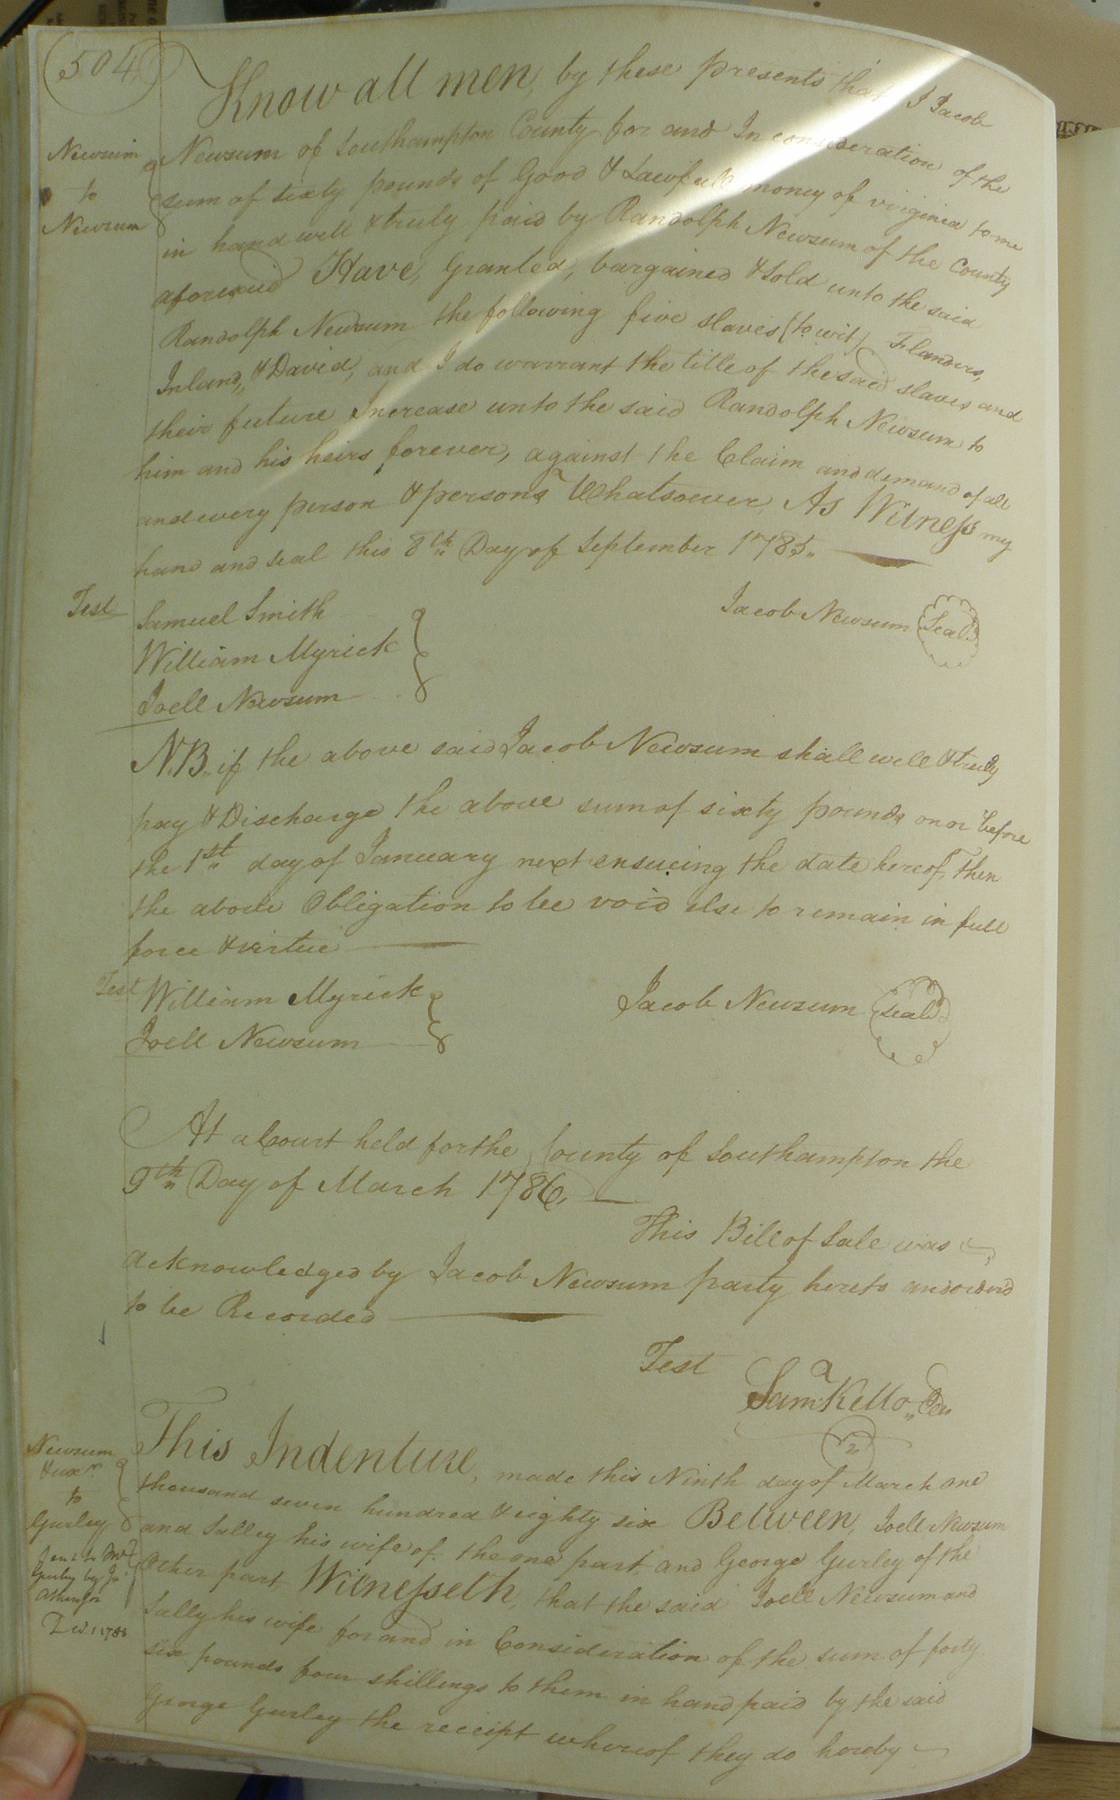 504
Know all men, by these presents that I Jacob
Newsum
to
Newsum
Newsum of Southampton County for and In consideration of the
sum of sixty pounds of Good & Lawfull money of virginia to me
in hand well & truly paid by Randolph Newsum of the County
aforesaid Have, Granted, bargained & sold unto the said
Randolph Newsum the following five slaves (to wit) Flanders,
& David, and I do warrant the title of the said slaves and
their future Increase unto the said Randolph Newsum to
him and his heirs forever, against the Claim and demand of all
and every person & persons Whatsoever, As Witness my
hand and seal this 8th Day of September 1785.
Test
Samuel Smith
William Myrick
Joell Newsum
Jacob Newsum Seal
N.B. if the above said Jacob Newsum shall well & truly
pay & Discharge the above sum of sixty pounds on or before
the 1st day of January next ensueing the date hereof, then
the above Obligation to be void else to remain in full
force & virtue
Test William Myrick
Joell Newsum
Jacob Newsum Seal
At a Court held for the County of Southampton the
9th Day of March 1786.
This Bill of Sale was
acknowledged by Jacob Newsum party hereto and ordered
to be Recorded
Test
Saml Kello
Newsum
& uxr
to
Gurley
This Indenture, made this Ninth day of March one
thousand seven hundred & eighty six Between, Joell Newsum
and Salley his wife of the one part, and George Gurley of the
Other part Witnesseth, that the said Joell Newsum and
Sally his wife for and in Consideration of the sum of forty
six pounds four shillings to them in hand paid by the said
George Gurley the receipt whereof they do hereby